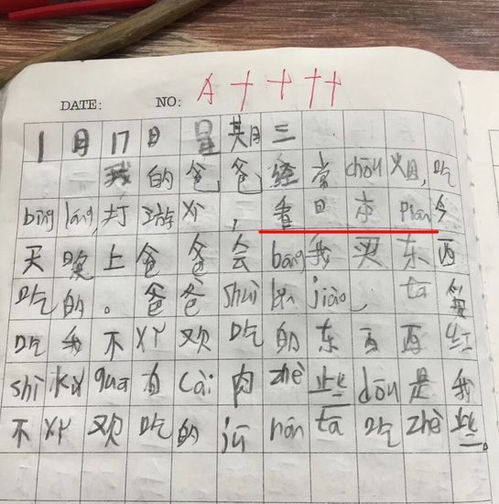 DATE: NO: A++++
1月17日 星期三
我的爸爸经常chōu烟,吃
bīng láng,打游戏,看日本piàn今
天晚上爸爸会bang我买东西
吃的。爸爸shuì jiào ta
吃我不欢吃的东西西红
shì qua 有cài肉zhè些dōu是我
不欢吃的jū nán ta吃zhè些。